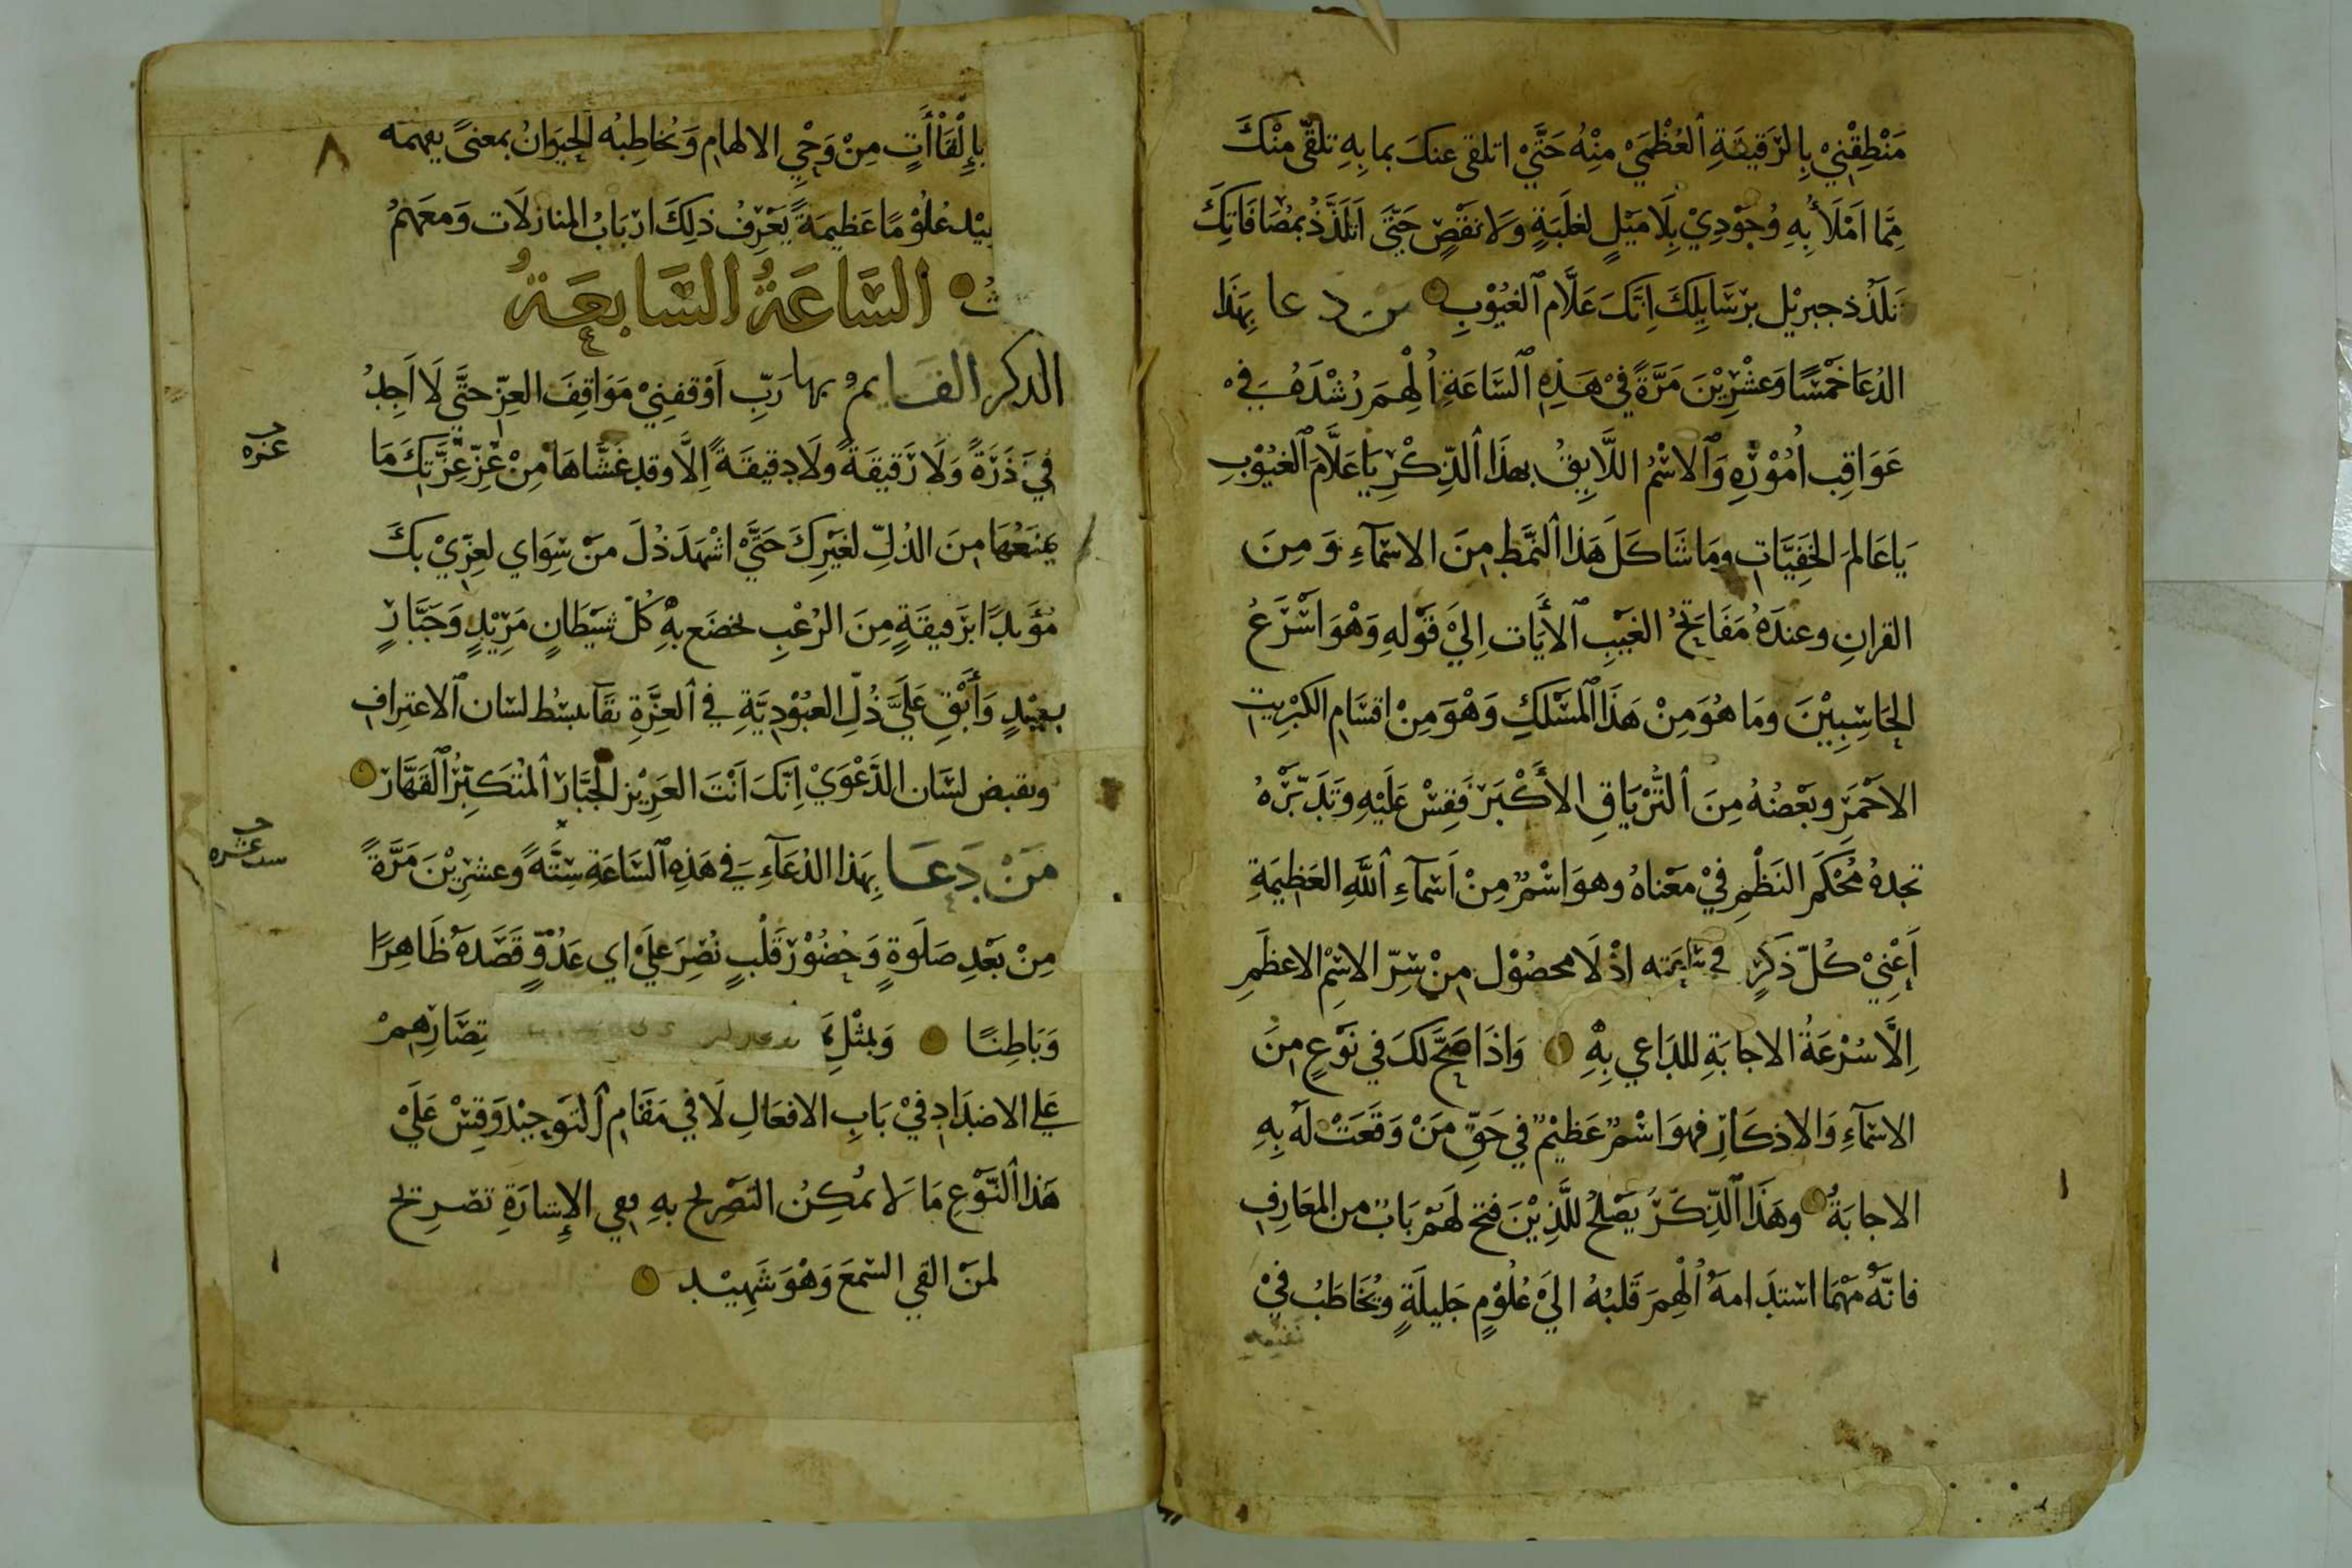 مَنْطِقْنِيْ بِالرَّقِيقَةِ ٱلْعُظْمَيْ مِنْهُ حَتَّيْ اتلقى عنكَ بما بِهِ تلقّى مِنْكَ
مِمَّا اَمْلَأُ بِهِ وُجُوْدِيْ بِلَا مَيْلٍ لغَلَبَةٍ وَلَا نَقْصٍ حَتَّىَ اَتَلَذَّذُ بمُصَافَاتِكَ
تَلَذُّذ جبريْل برسَايِلِكَ اِنَّكَ عَلَّام ٱلغيُوْبِ من دعا بِهَذَا
الدُعَا خَمْسًا وَعشْرِيْنَ مَرَّةً فِيْ هَذِهِ ٱلسَّاعَةِ اُلْهِمَ رُشْدَهُ فِيْ
عَوَاقِب اُمُوْرِهِ وَٱلاسْمُ اللَّايِقُ بهذَا ٱلذِّكْرِ يَا عَلَّامَ ٱلغيُوْبِ
يَا عَالمَ الخَفِيَّاتِ ومَا شَاكَلَ هَذَا ٱلنَّمَط مِنَ الاسْمَآءِ وَمِنَ
القرانِ وعندَهُ مَفَاتِحُ الغَيْبِ ٱلأَيَات اِلَيْ قَوْلهِ وَهْوَ اَسْرَعُ
الحَاسِبِيْنَ ومَا هُوَ مِنْ هَذَا ٱلمَسْلَكِ وَهْوَ مِنْ اقسَامِ الكبْرِيت
الاحْمَرِ وبَعْضُهُ مِنَ ٱلتِّرْيَاقِ الأَكْبَر فَقِسْ عَلَيْهِ وَتَدَبَّرْهُ
تجدهُ مُحْكَمَ النَظْمِ فِيْ مَعْناهُ وهوَ اسْمٌ مِنْ اَسْمآءِ ٱللَّهِ العَظِيمَةِ
اَعْنِيْ كُلّ ذَكَرٍ في سَايمته اذْ لَا محصُوْل مِنْ سِرّ الاسْمِ الاعظَمِ
اِلَّا سُرْعَةُ الاجابَةِ للدَاعي بِهِ وَاذَا صَحَّ لكَ في نَوْعٍ مِنَ
الاسْمآءِ وَالاذكَارِ فهوَ اسْمٌ عَظيْمٌ في حَقِّ مَنْ وَقَعَتْ لَهُ بِهِ
الاجابَةُ وهَذَا ٱلذِّكْرُ يَصْلحُ للَّذِيْنَ فتح لَهُمْ بَابٌ من المعَارِفِ
فانّهُ مَهْمَا استدَامهُ اُلْهِمَ قَلبُهُ اليَ عُلُوْمٍ جَليلَةٍ ويُخَاطَبُ فِيْ
بِإِلْقَاْأَتٍ مِنْ وَحْيِ الالهامِ وَيُخاطِبُه الحيَوَانُ بمعنىً يفهمه
عُلُوْمًا عَظيمَةً يَعْرِفُ ذلِكَ ارْبَابُ المنازلَات وَمعَهمُ
السَّاعَةُ السَّابعَةُ
الذكر القايم بها رَبِّ اَوْقفنِيْ مَوَاقِفَ العِزّ حَتَّى لَا اَجِدُ
فِيَ ذَرَةً وَلَا رَقيقَةً ولَا دقيقَةً اِلَّا وقد غَشَّاهَا مِنْ عَزِّ عِزَّتِكَ مَا
يمنَعُهَا مِنَ الذُلِّ لغَيْرِكَ حَتَّيْ اشْهَدَ ذُلَ مَنْ سِوَاي لعِزّيْ بكَ
مُؤَيدًا برَقيقَةٍ مِنَ الرُعْبِ يخضَع بهِ كُلّ شيْطَانٍ مَرِيْدٍ وَجَبَّارٍ
بعيْدٍ وَأَبْقِ عَلَيَّ ذُلّ العبُوْدِيَّةِ في ٱلعزَّةِ بقَآ يبسُط لسَان ٱلاعتِرَافِ
وتقبض لسَان الدَّعْوَيْ اِنَّكَ اَنْتَ العَزِيْز الجَبَّار ٱلمُتكَبِّرُ ٱلقَهَّار
مَنْ دَعَا بِهَذا الدُعَآءِ في هَذِهِ ٱلسَّاعَةِ سِتَّةً وعشرِيْنَ مَرَّةً
مِنْ بَعْدِ صَلَوةٍ وَحُضُوْر قَلْبٍ نُصِرَ عَلَيْ اي عَدُوٍّ قَصَدَهُ ظَاهِرًا
وَبَاطِنًا وَبمثْلِ تِصَارِهِمْ
عَلي الاضدَادِ فيْ بَابِ الافعَالِ لَا في مَقَامِ ٱلتوحِيْد وَقِسْ عَلَيْ
هَذا ٱلنَّوْعِ مَا لَا يمُكِنُ التصْرِيح بهِ ففي الإِشارَةِ تصْرِيح
لمنَ القي السّمعَ وَهْوَ شَهِيْد